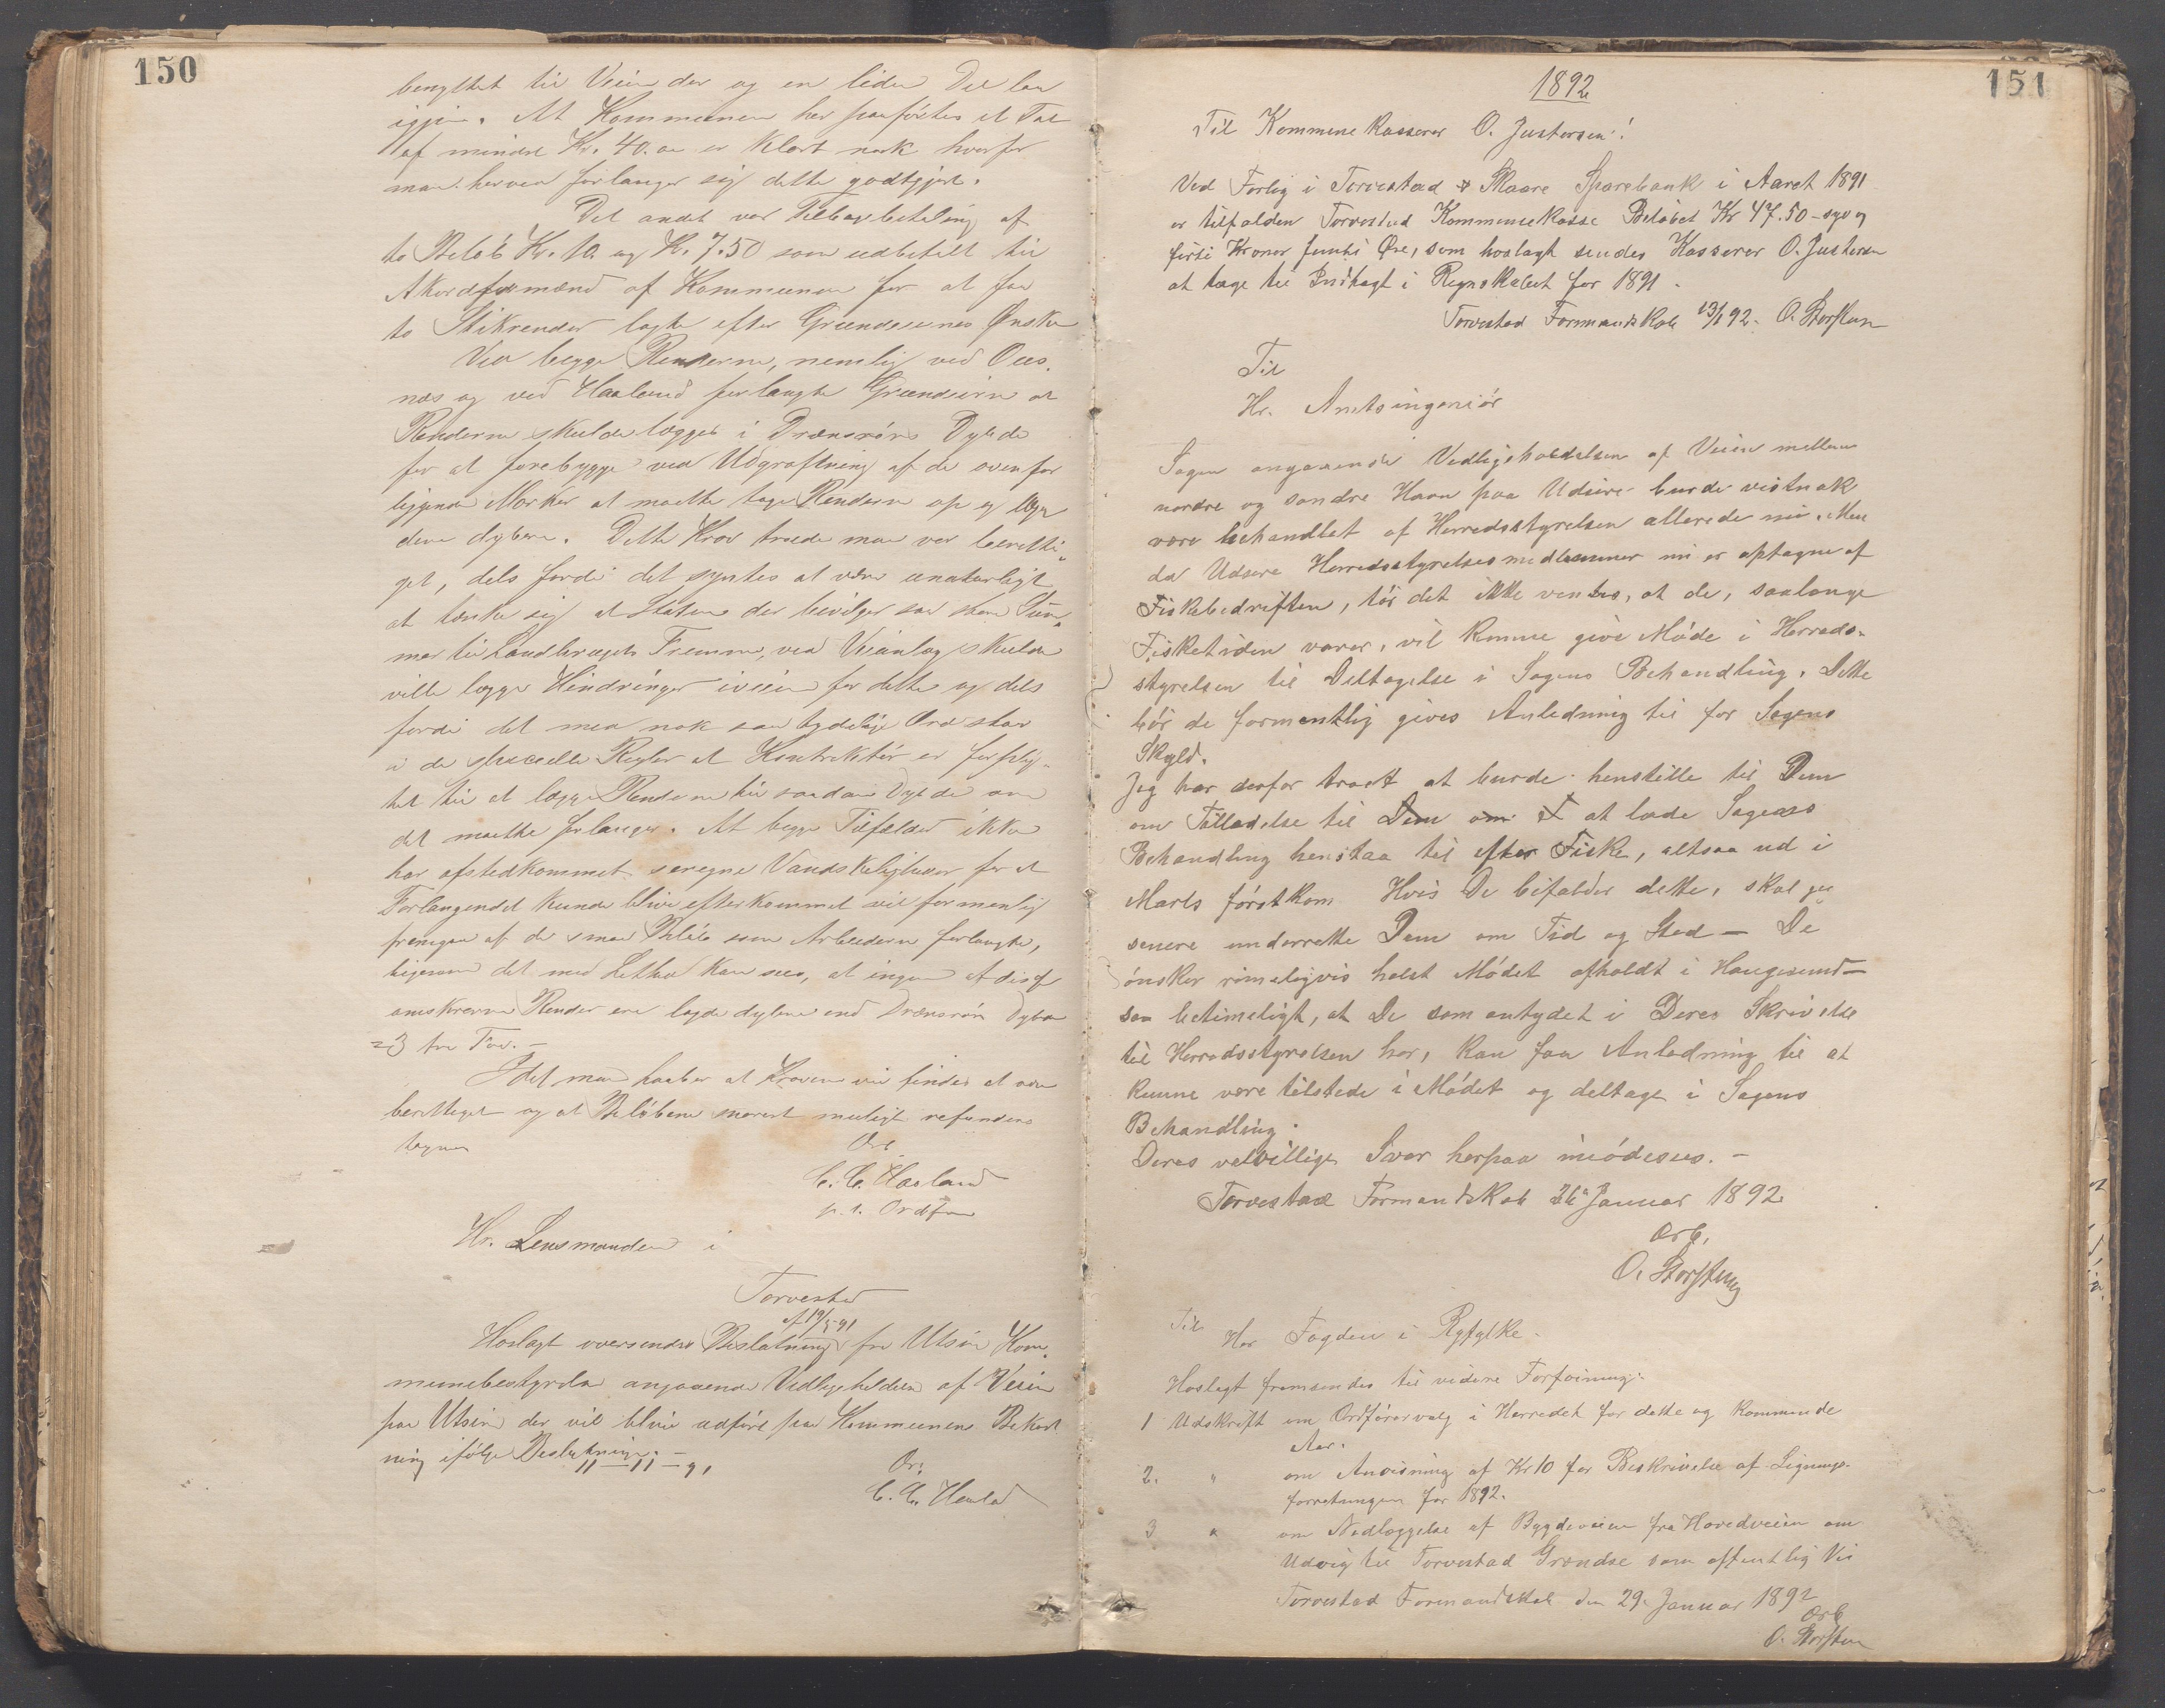 150
benyttet til Veien der og en liden Del laa
igjen. At Kommunen her paaførtes et Tab
af mindst Kr. 40.00 er klart nok hvorfor
man herved forlanger sig dette godtgjort.
Det andet var Tilbagebetaling af
to Beløb Kr. 10 og Kr. 7.50 som udbetalt til
Akordformænd af Kommunen for at faa
to Stikrender lagte efter Grundeiernes Ønske
Ved begge Renderne, nemlig ved Oes-
næs og ved Haaland forlangte Grundeierne at
Renderne skulde lægges i Drænsrørs Dybde
for at forebygge ved Udgrøftning af de ovenfor
liggende Marker at maatte tage Renderne op og lægge
dem dybere. Dette Krav troede man var beretti-
get, dels fordi det syntes at være unaturligt
at tænke sig at Staten der bevilger saa store Sum-
mer til Landbrugets Fremme, ved Veianlæg skulde
ville lægge Hindringer iveien for dette og dels
fordi det med nok saa tydelige Ord staar
i de specielle Regler at Kontraktør er forplig-
tet til at lægge Renderne til saadan Dybde som
det maatte forlanges. At begge Tilfælder ikke
har afstedkommet særegne Vanskeligheder for at
Forlangendet kunde blive efterkommet vil formentlig
fremgaa af de smaa Beløb som Arbeiderne forlangte,
ligesom det med Lethed kan sees, at ingen af disse
omskrevne Render ere lagde dybere end Drænsrørs Dybde
=3 tre Fod. –
Idet man haaber at Kravene vil findes at være
berettiget og at Beløbene snarest muligt refunderes
tegner
Ærb.
C. C. Haaland
p. t. Ordfør
Hr. Lensmanden i
Torvestad
af 19/5 91
Hoslagt oversendes Beslutning fra Utsire Kom-
munebestyrelse angaaende Vedligeholdelsen af Veien
paa Utsire der vil blive udført paa Kommunens Bekost
ning ifølge Beslutning. –
11–11–91
Ær.
C. C. Haaland
151
1892
Til Kommunekasserer O. Justersen!
Ved Forlig i Torvestad & Skaare Sparebank i Aaret 1891
er tilfalden Torvestad Kommunekasse Beløbet Kr 47.50 – syv og
førti Kroner femti Øre, som hoslagt sendes Kasserer O. Justersen
at tage til Indtægt i Regnskabet for 1891.
Torvestad Formandskab 13/1 92. O. Storsten
Til
Hr. Amtsingeniør
Sagen angaaende Vedligeholdelsen af Veien mellem
nordre og søndre Havn paa Udsire burde vistnok
være behandlet af Herredsstyrelsen allerede nu. Men
da Udsire Herredsstyrelsesmedlemmer nu er optagne af
Fiskebedriften, tør det ikke ventes, at de, saalænge
Fisketiden varer, vil kunne give Møde i Herreds-
styrelsen til Deltagelse i Sagens Behandling. Dette
bør de formentlig gives Anledning til for Sagens
Skyld.
Jeg har derfor troet at burde henstille til Dem
om Tilladelse til Dem om T at lade Sagens
Behandling henstaa til efter Fiske, altsaa ud i
Marts førstkom. Hvis De bifalder dette, skal jeg
senere underrette Dem om Tid og Sted – De
ønsker rimeligvis helst Mødet afholdt i Haugesund –
saa betimeligt, at De som antydet i Deres Skrivelse
til Herredsstyrelsen her, kan faa Anledning til at
kunne være tilstede i Mødet og deltage i Sagens
Behandling.
Deres velvillige Svar herpaa imødesees. –
Torvestad Formandskab 26 Januar 1892
Ærb.
O. Storsten
Til
Her Fogden i Ryfylke.
Hoslagt fremsendes til videre Forføining:
1 Udskrift om Ordførervalg i Herredet for dette og kommende
Aar.
2. " om Anvisning af Kr 10 for Beskrivelse af Lignings-
forretningen for 1892.
3 " om Nedlæggelse af Bygdeveien fra Hovedveien om
Udvig til Torvestad Grændse som offentlig Vei
Torvestad Formandskab den 29. Januar 1892
Ærb
O. Storsten